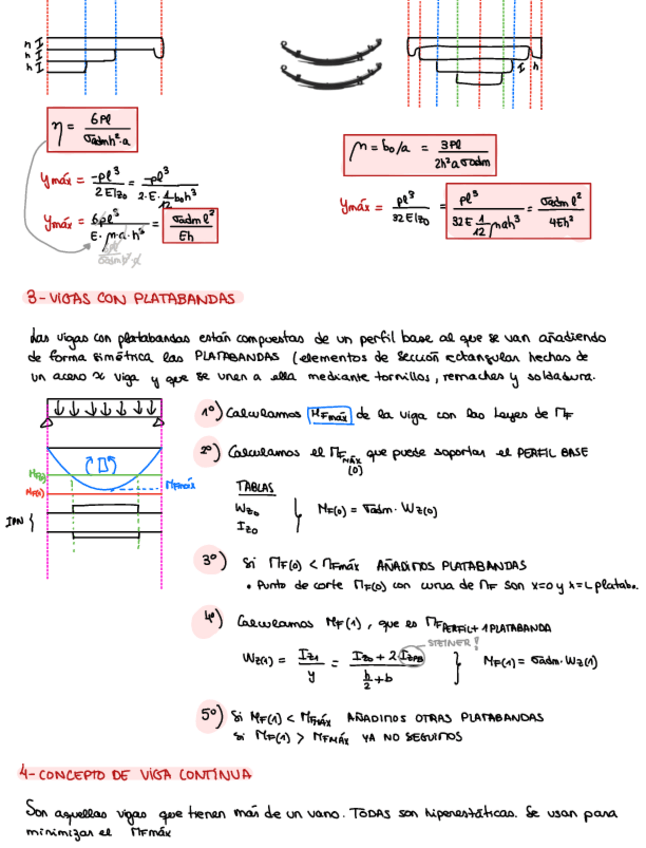 n I
n I
h I
I h
η = 6Pl / σadm h²·a
n = b₀/a = 3Pl / 2h²a σadm
Ymáx = -Pl³ / 2EIz₀ = -Pl³ / 2·E·1/12 b₀h³
Ymáx = 6Pl³ / E·n·a·h³ = σadm l² / Eh
6Pl / σadm h²·a
Ymáx = Pl³ / 32EIz₀ = Pl³ / 32E 1/12 nah³ = σadm l² / 4Eh²
3- VIGAS CON PLATABANDAS
Las vigas con platabandas están compuestas de un perfil base al que se van añadiendo
de forma simétrica las PLATABANDAS (elementos de sección ectangular hechos de
un acero ≈ viga y que se unen a ella mediante tornillos, remaches y soldadura.
1º) Calculamos MFmáx de la viga con las leyes de MF
2º) Calculamos el MFMÁX(0) que puede soportar el PERFIL BASE
MF(1)
MF(0)
MFmáx
IPN
TABLAS
Wz₀
Iz₀
MF(0) = σadm · Wz(0)
3º) Si MF(0) < MFmáx AÑADIMOS PLATABANDAS
• Punto de corte MF(0) con curva de MF son x=0 y x=L plataba.
4º) Calculamos MF(1), que es MF PERFIL + 1 PLATABANDA
STEINER!
Wz(1) = Iz1 / y = Iz₀ + 2 IzPB / h/2 + b } MF(1) = σadm · Wz(1)
5º) Si MF(1) < MFMÁX AÑADIMOS OTRAS PLATABANDAS
Si MF(1) > MFMÁX YA NO SEGUIMOS
4- CONCEPTO DE VIGA CONTINUA
Son aquellas vigas que tienen más de un vano. TODAS son hiperestáticas. Se usan para
minimizar el MFmáx